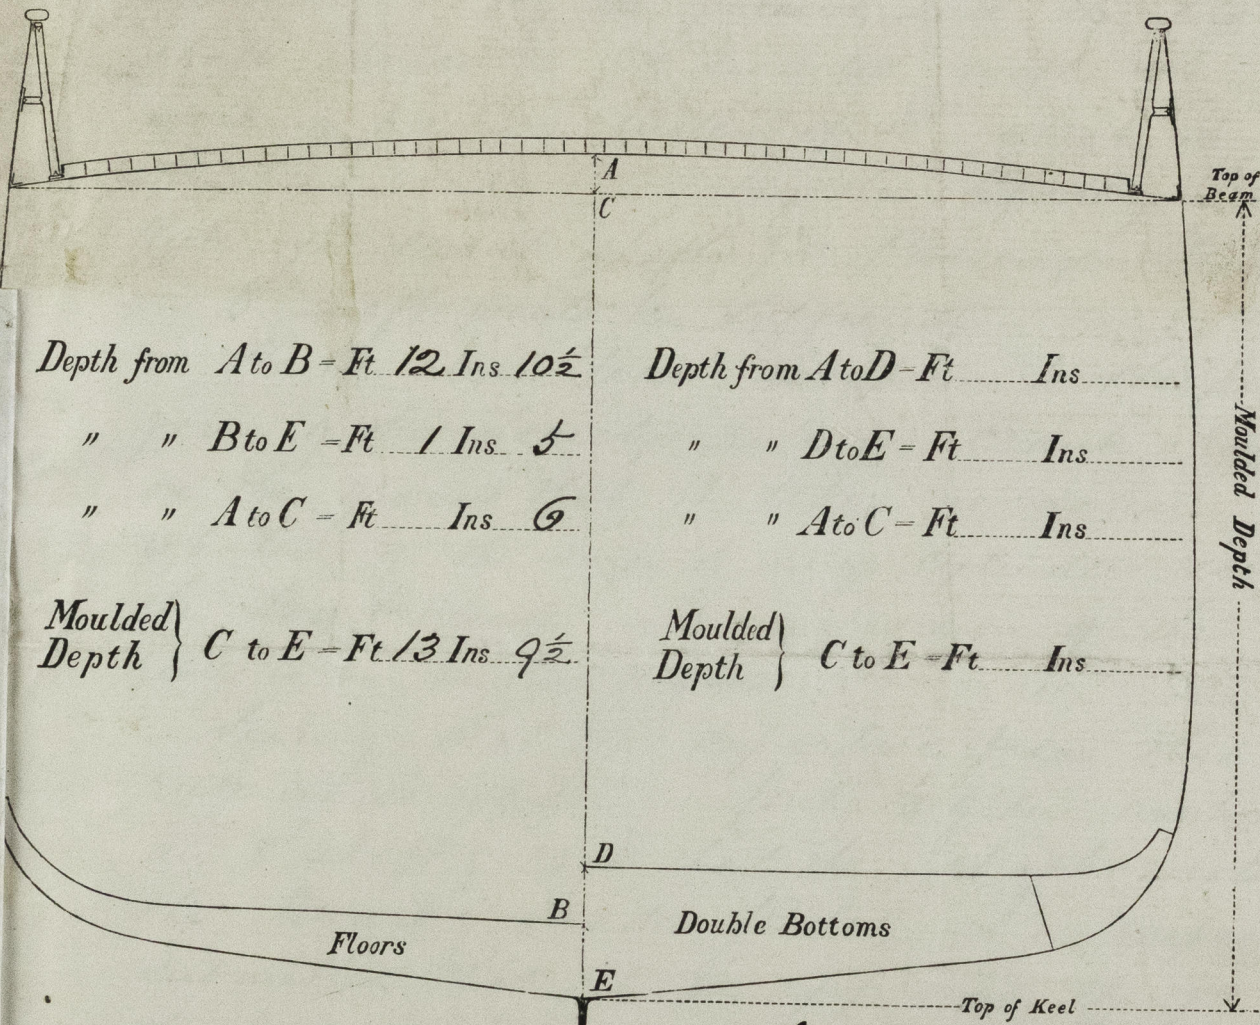 A
C
Top of
Beam
Depth from A to B = Ft 12 Ins 10½
" " B to E = Ft 1 Ins 5
" " A to C = Ft Ins 6
Moulded
Depth } C to E = Ft 13 Ins 9½
Depth from A to D = Ft Ins
" " D to E = Ft Ins
" " A to C = Ft Ins
Moulded
Depth } C to E = Ft Ins
Moulded Depth
D
B
Floors
Double Bottoms
E
Top of Keel